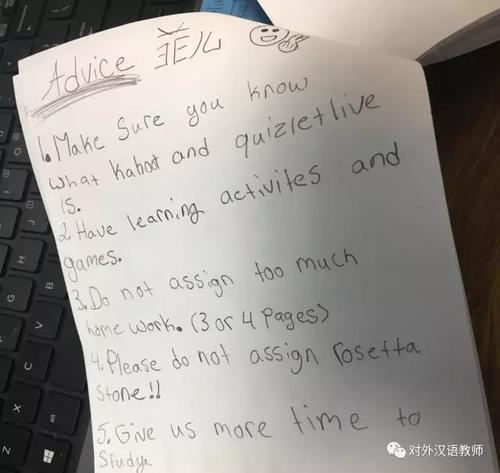 Advice 菲儿
1. Make sure you know
what kahoot and quizlet live
is.
2. Have learning activites and
games.
3. Do not assign too much
home work. (3 or 4 pages)
4. Please do not assign rosetta
stone!!
5. Give us more time to
study
对外汉语教师